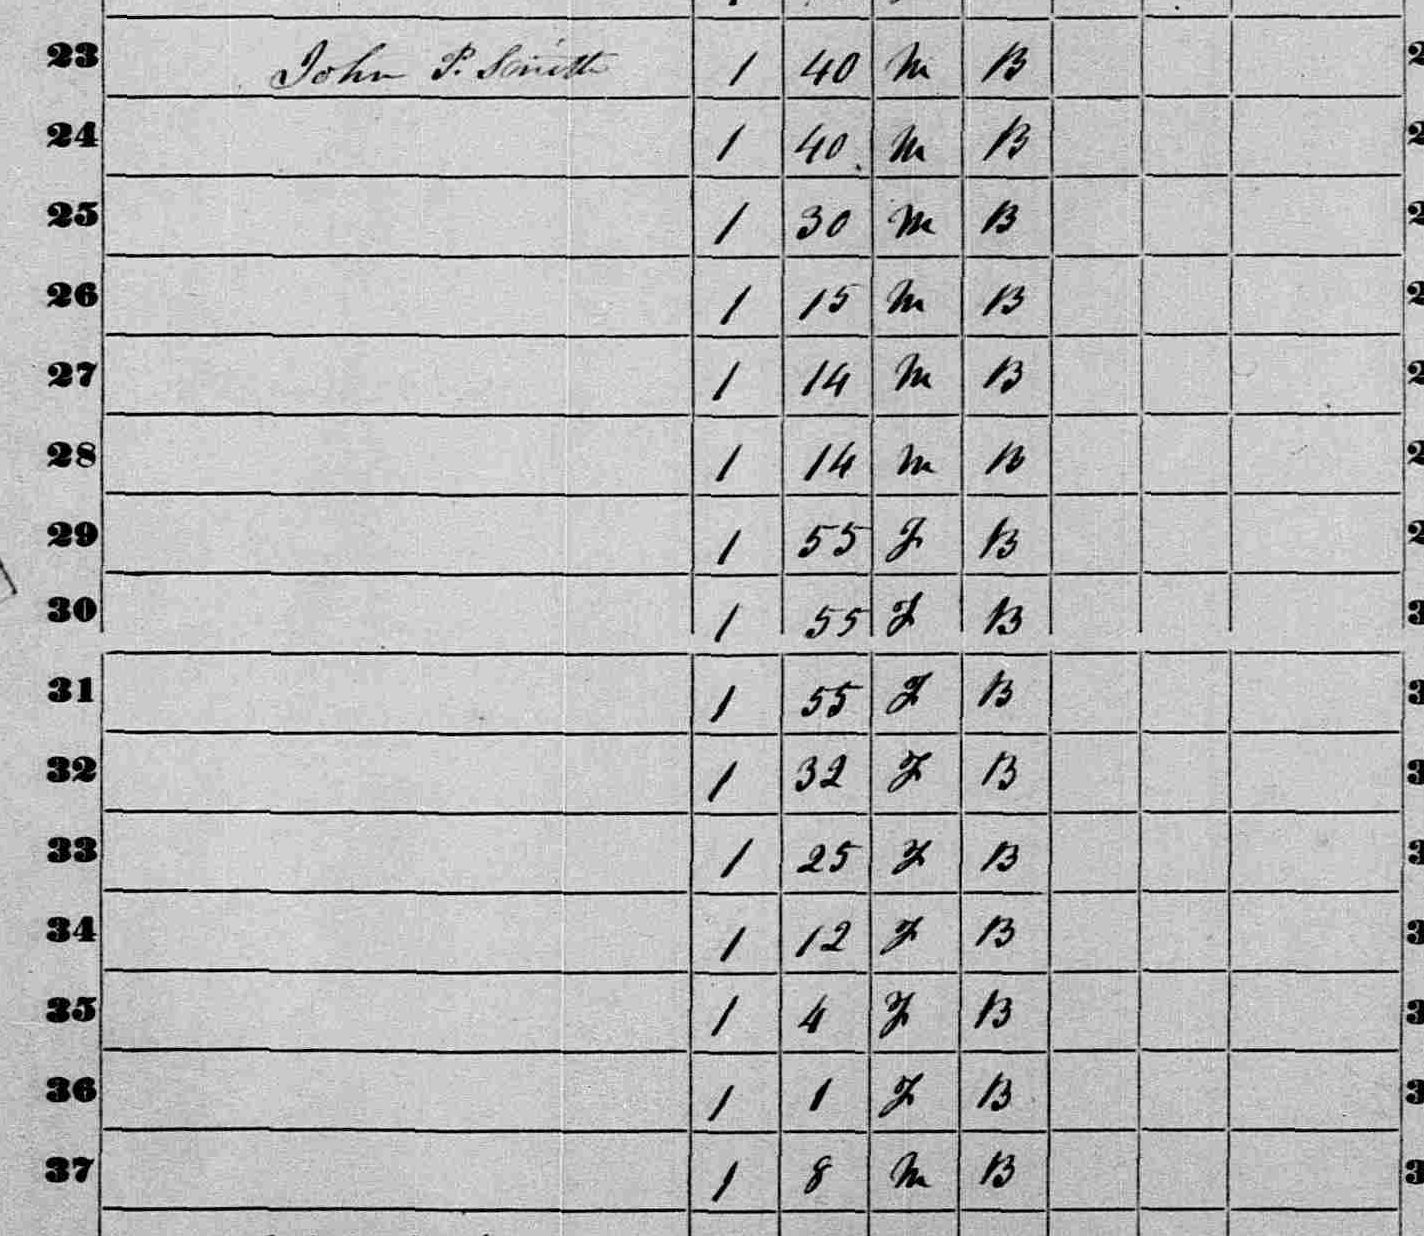 23 John P. Smith 1 40 M B 2
24 1 40 M B 2
25 1 30 M B 2
26 1 15 M B 2
27 1 14 M B 2
28 1 14 M B 2
29 1 55 F B 2
30 1 55 F B 3
31 1 55 F B 3
32 1 32 F B 3
33 1 25 F B 3
34 1 12 F B 3
35 1 4 F B 3
36 1 1 F B 3
37 1 8 M B 3